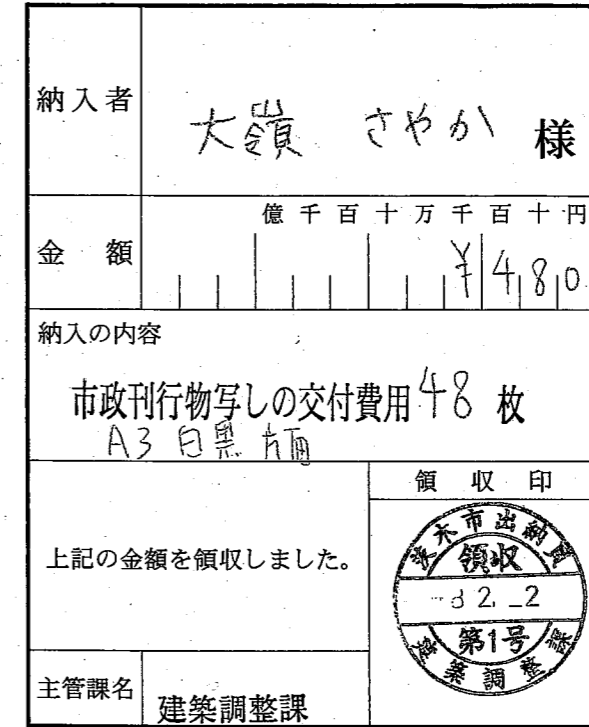 納入者
大嶺 さやか 様
億千百十万千百十円
金額
¥480
納入の内容
市政刊行物写しの交付費用48枚
A3 白黒 片面
領収印
上記の金額を領収しました。
茨木市出納員
領収
2.-2
第1号
建築調整課
主管課名
建築調整課